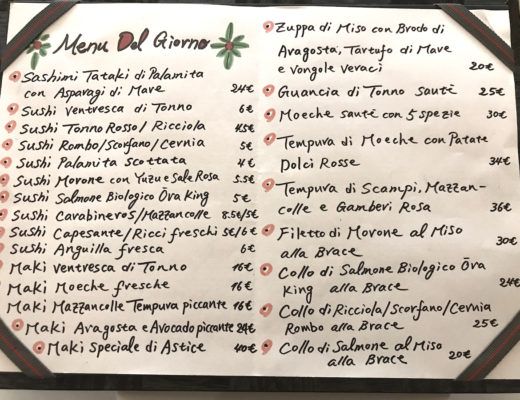 Menu Del Giorno
Sashimi Tataki di Palamita
con Asparagi di Mare 24€
Sushi Ventresca di Tonno 6€
Sushi Tonno Rosso/Ricciola 4.5€
Sushi Rombo/Scorfano/Cernia 5€
Sushi Palamita Scottata 4€
Sushi Morone con Yuzu e Sale Rosa 5.5€
Sushi Salmone Biologico Ōra King 5€
Sushi Carabineros/Mazzancolle 8.5€/5€
Sushi Capesante/Ricci freschi 5€/6€
Sushi Anguilla fresca 6€
Maki Ventresca di Tonno 16€
Maki Moeche fresche 16€
Maki Mazzancolle Tempura piccante 16€
Maki Aragosta e Avocado piccante 24€
Maki Speciale di Astice 40€
Zuppa di Miso con Brodo di
Aragosta, Tartufo di Mare
e Vongole Veraci 20€
Guancia di Tonno sautè 25€
Moeche sautè con 5 spezie 30€
Tempura di Moeche con Patate
Dolci Rosse 34€
Tempura di Scampi, Mazzan-
colle e Gamberi Rosa 36€
Filetto di Morone al Miso
alla Brace 30€
Collo di Salmone Biologico Ōra
King alla Brace 24€
Collo di Ricciola/Scorfano/Cernia
Rombo alla Brace 25€
Collo di Salmone al Miso
alla Brace 20€